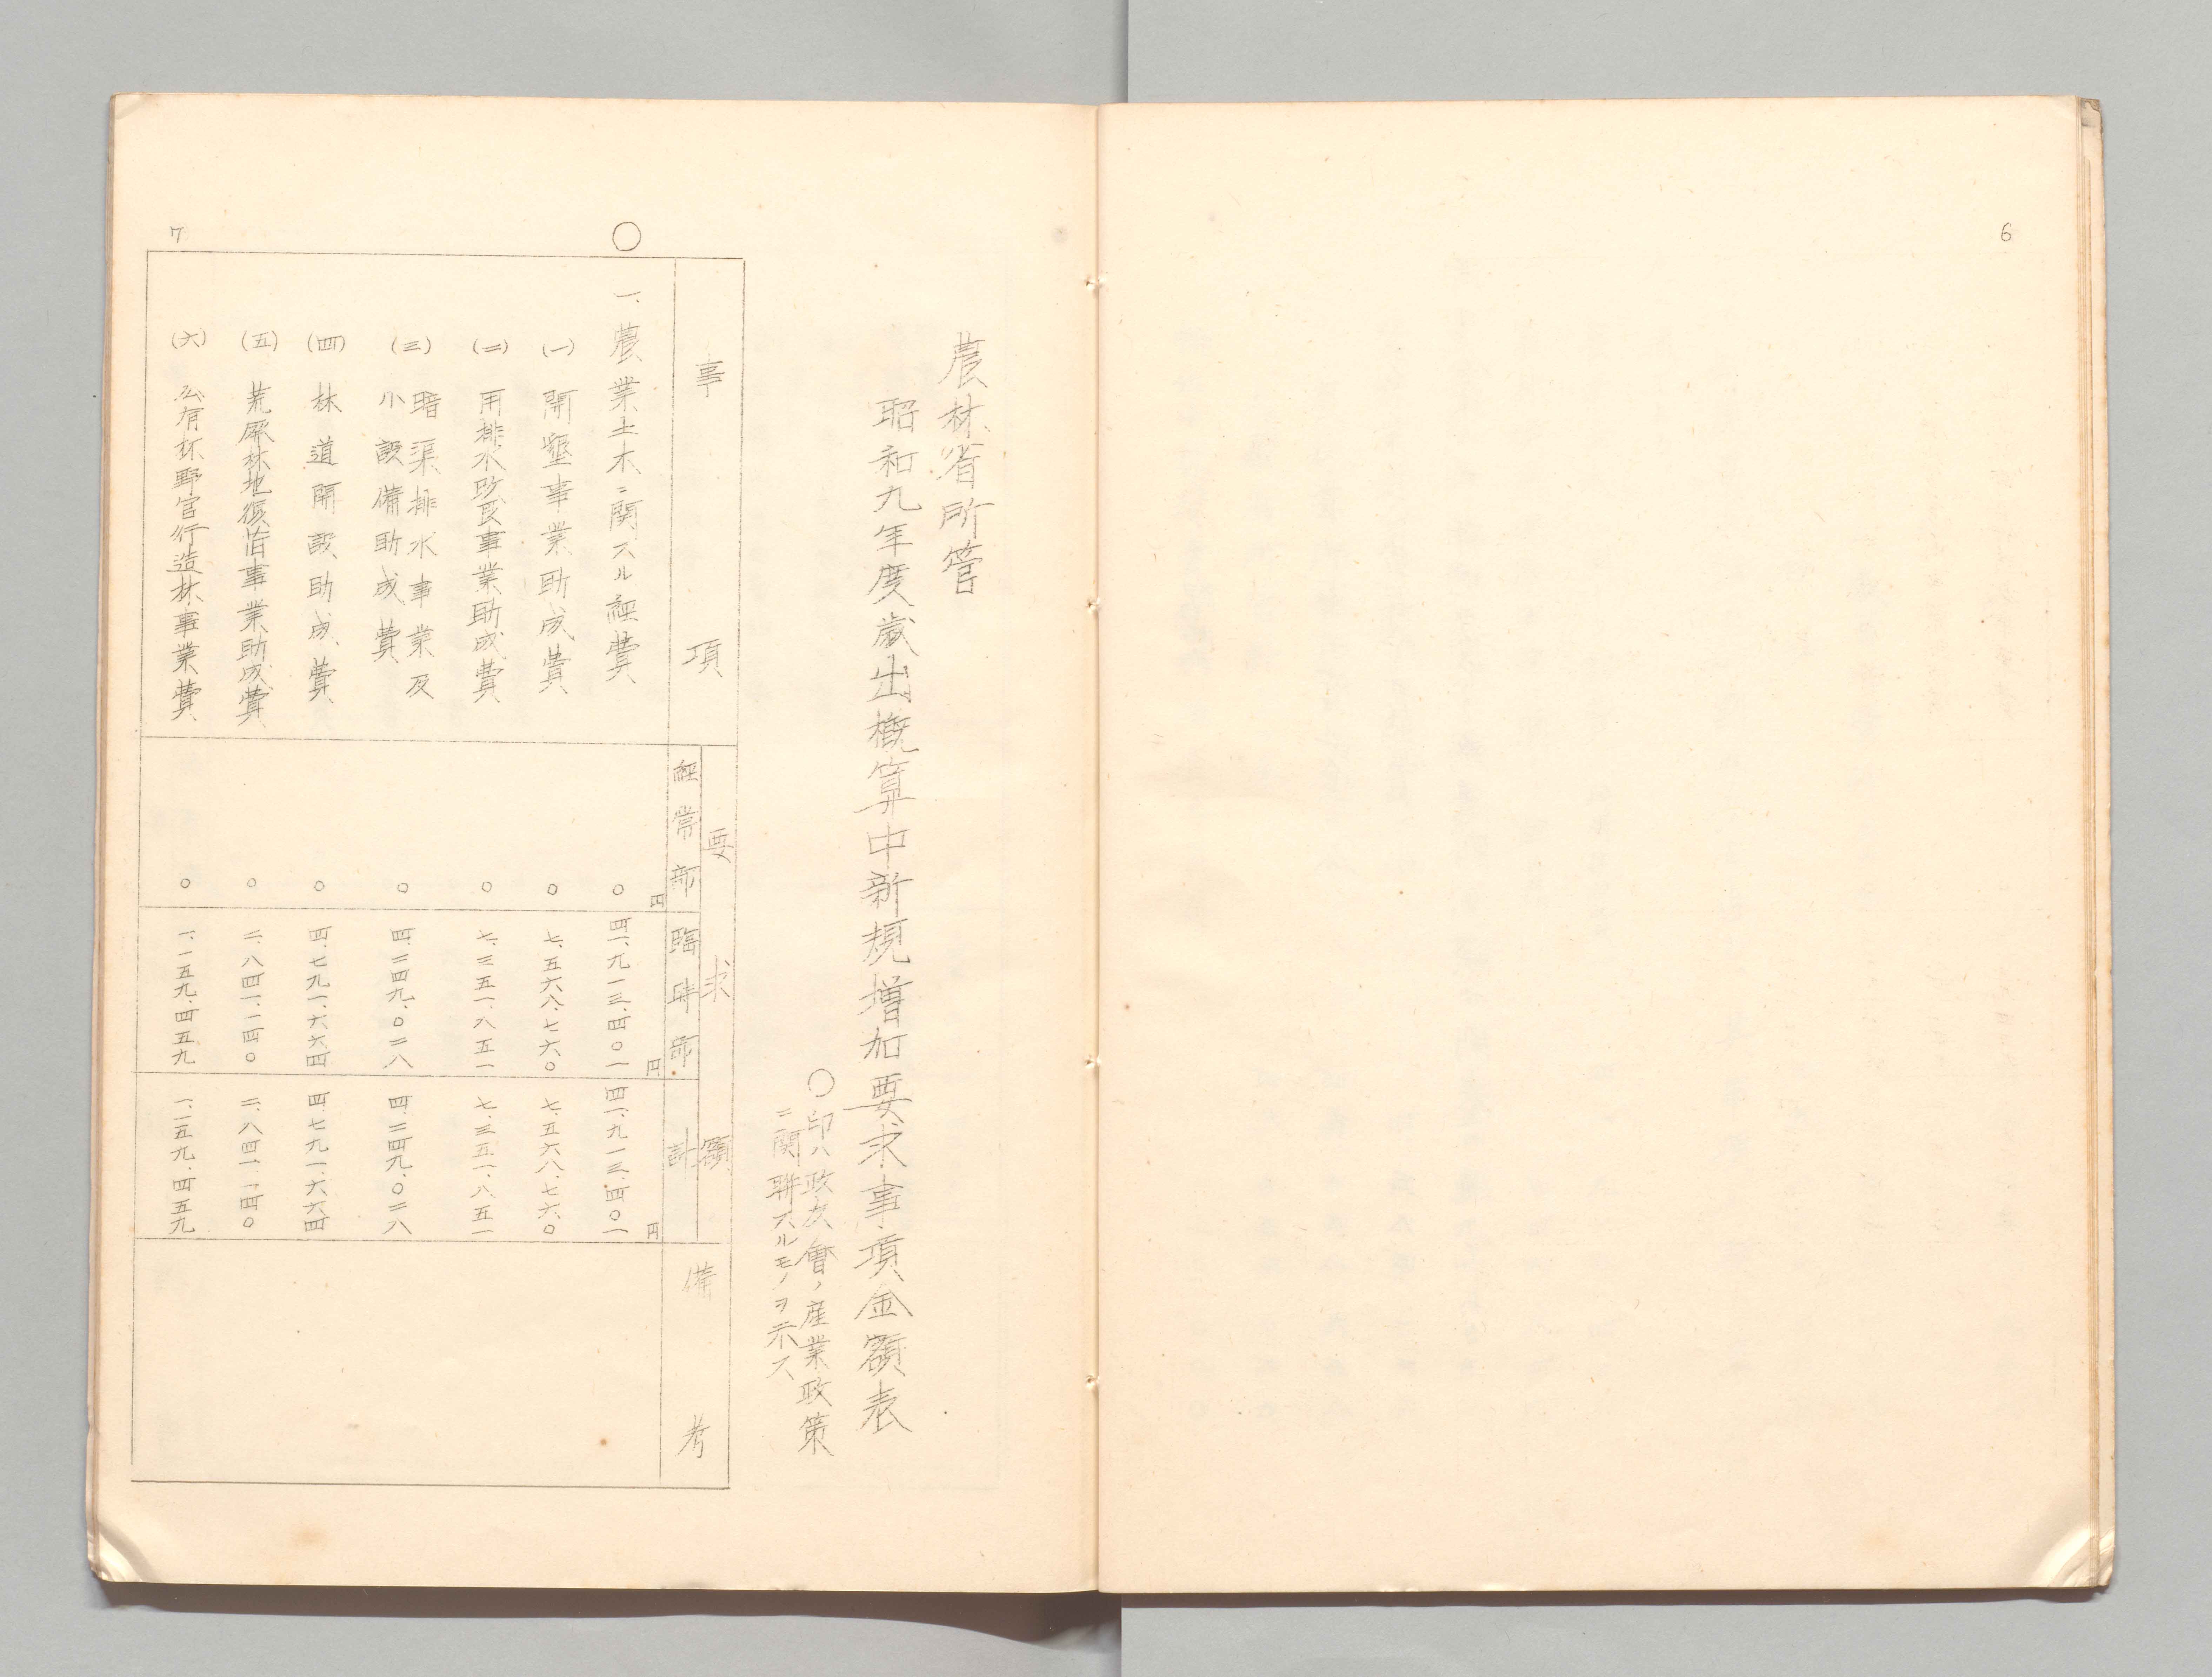 6
農林省所管
昭和九年度歳出概算中新規増加要求事項金額表
○印ハ政友會ノ産業政策
ニ関聯スルモノヲ示ス
事項
要求額
経常部
臨時部
計
備考
円
円
円
○
一、農業土木ニ関スル経費
○
四一、九一三、四〇一
四一、九一三、四〇一
(一) 開墾事業助成費
○
七、五六八、七六〇
七、五六八、七六〇
(二) 用排水改良事業助成費
○
七、三五一、八五一
七、三五一、八五一
(三) 暗渠排水事業及
小設備助成費
○
四、二四九、〇二八
四、二四九、〇二八
(四) 林道開設助成費
○
四、七九一、六六四
四、七九一、六六四
(五) 荒廃林地復旧事業助成費
○
二、八四一、一四〇
二、八四一、一四〇
(六) 公有林野官行造林事業費
○
一、一五九、四五九
一、一五九、四五九
7